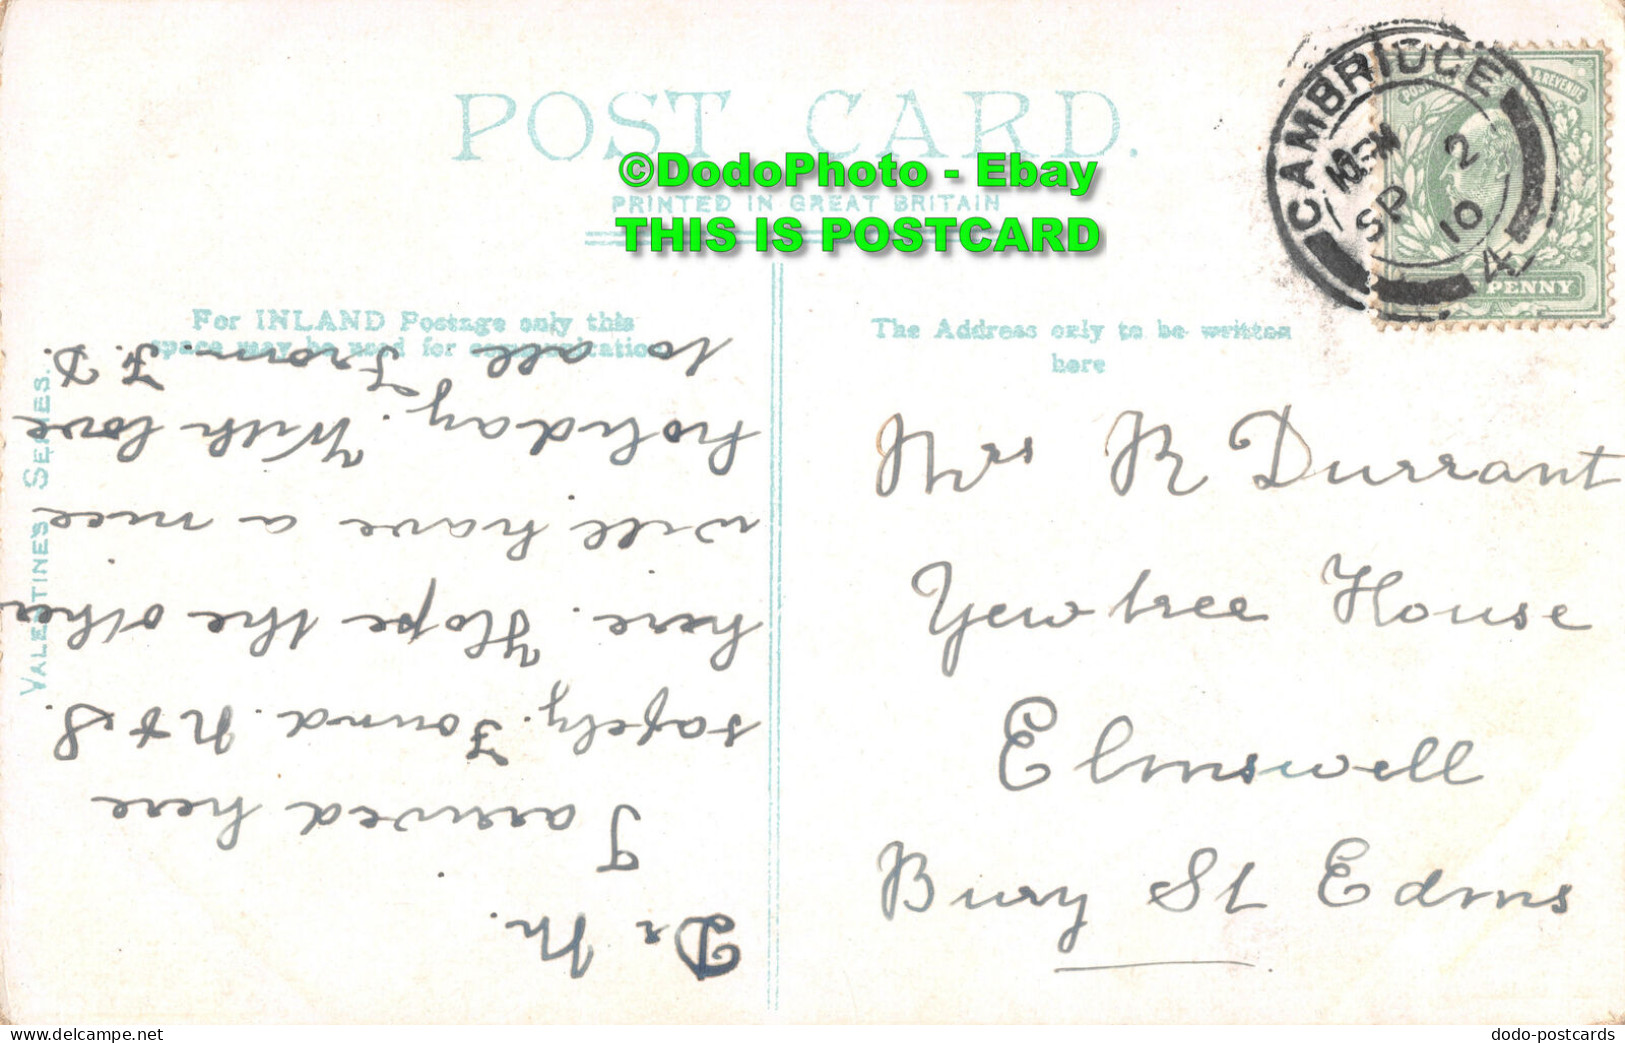 POST CARD.
©DodoPhoto - Ebay
PRINTED IN GREAT BRITAIN
THIS IS POSTCARD
CAMBRIDGE
SP 2
10
4
POSTAGE & REVENUE
PENNY
For INLAND Postage only this
space may be used for communication
The Address only to be written
here
VALENTINE'S SERIES.
Dr M.
I arrived here
safely. Found N & S.
here. Hope the other
will have a nice
holiday. With love
to all From F. D.
Mrs R Durrant
Yewtree House
Elmswell
Bury St Edms
www.delcampe.net
dodo-postcards